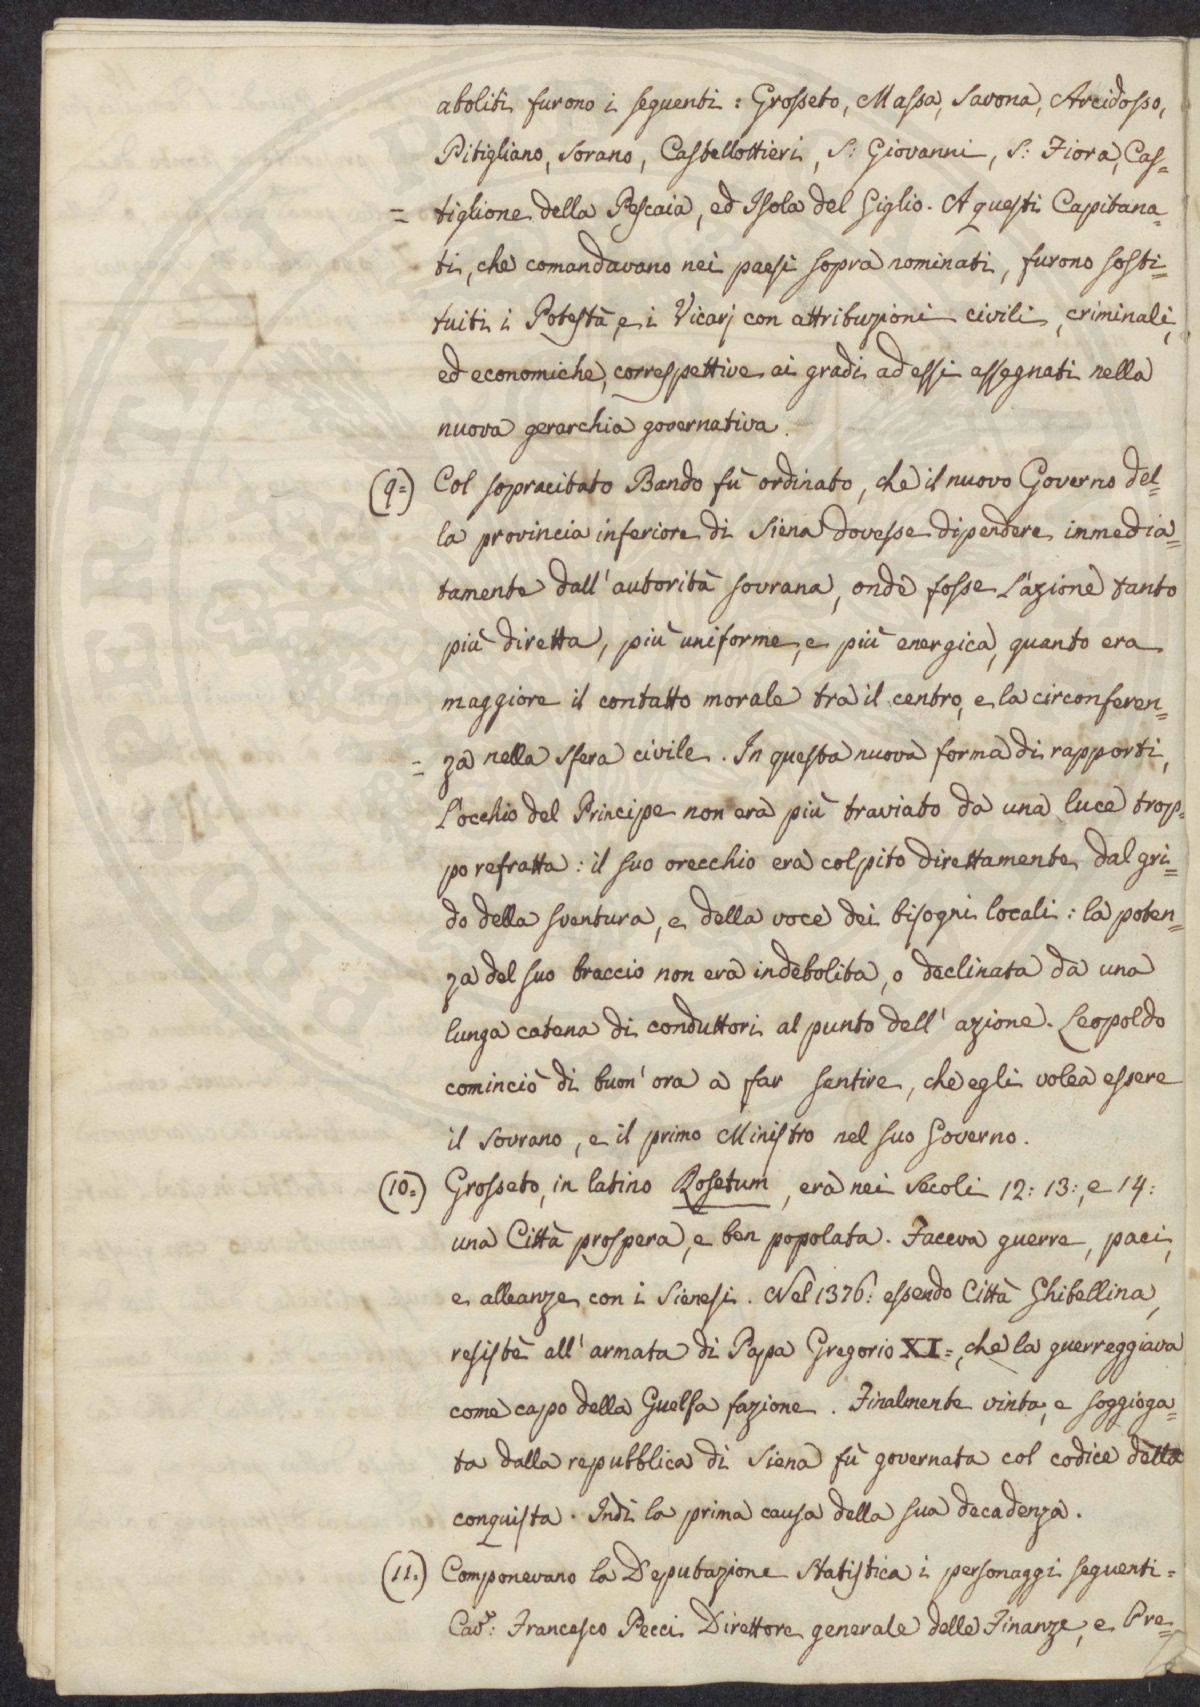 aboliti furono i seguenti : Grosseto, Massa, Savona, Arcidosso,
Pitigliano, Sorano, Castellottieri, S: Giovanni, S: Fiora, Cas=
= tiglione della Pescaia, ed Isola del Giglio. A questi Capitana=
ti, che comandavano nei paesi sopra nominati, furono sosti=
tuiti i Potestà, e i Vicarj con attribuzioni civili, criminali,
ed economiche, correspettive ai gradi ad essi assegnati nella
nuova gerarchia governativa.
(9=) Col sopracitato Bando fù ordinato, che il nuovo Governo del=
la provincia inferiore di Siena dovesse dipendere immedia=
tamente dall' autorità sovrana, onde fosse l'azione tanto
più diretta, più uniforme, e più energica, quanto era
maggiore il contatto morale tra il centro, e la circonferen=
= za nella sfera civile. In questa nuova forma di rapporti,
l'occhio del Principe non era più traviato da una luce trop=
po refratta : il suo orecchio era colpito direttamente dal gri=
do della sventura, e della voce dei bisogni locali : la poten=
za del suo braccio non era indebolita, o declinata da una
lunga catena di conduttori al punto dell' azione. Leopoldo
cominciò di buon' ora a far sentire, che egli volea essere
il Sovrano, e il primo Ministro nel suo Governo.
(10=) Grosseto, in latino Rosetum, era nei Secoli 12: 13:, e 14:
una Città prospera, e ben popolata. Faceva guerre, paci,
e alleanze con i Sienesi. Nel 1376: essendo Città Ghibellina,
resistè all' armata di Papa Gregorio XI=, che la guerreggiava
come capo della Guelfa fazione. Finalmente vinta, e soggioga=
ta dalla repubblica di Siena fù governata col codice della
conquista. Indi la prima causa della sua decadenza.
(11.) Componevano la Deputazione Statistica i personaggi seguenti =
Cav.: Francesco Pecci Direttore generale delle Finanze, e Pre=